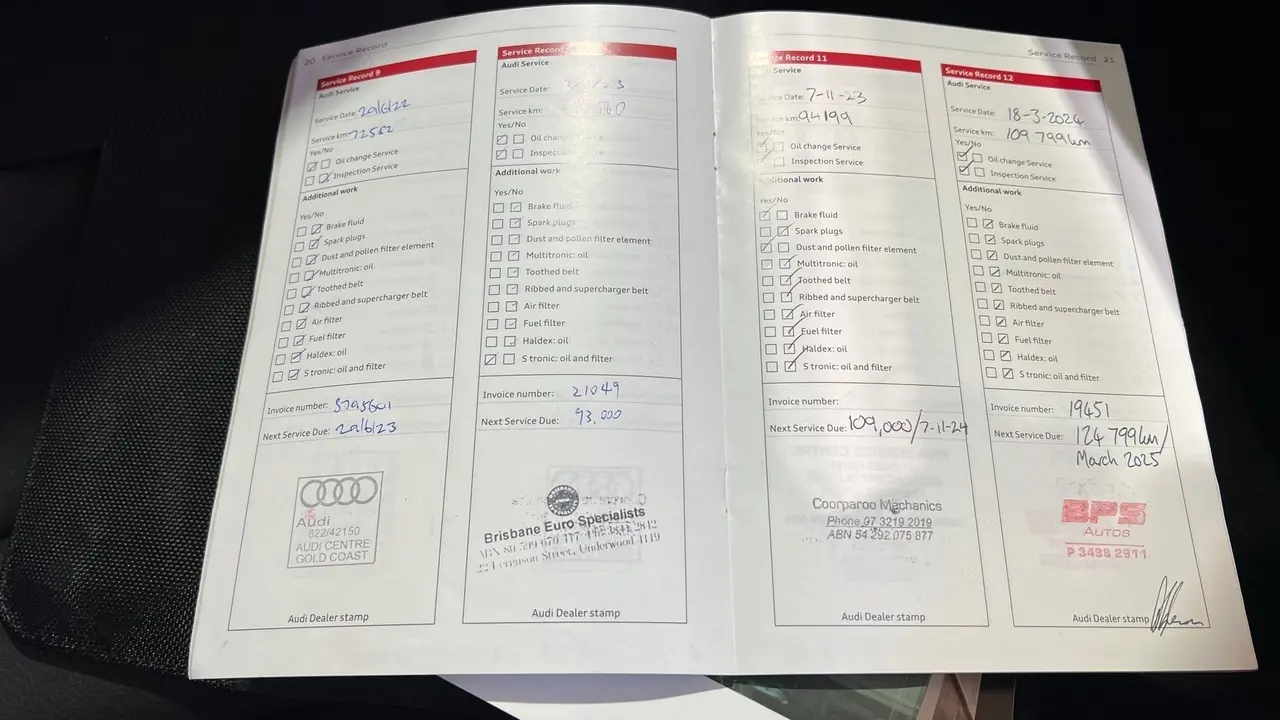 20 Service Record
Service Record 9
Audi Service
Service Date: 29/6/22
Service km: 72562
Yes/No
Oil change Service
Inspection Service
Additional work
Yes/No
Brake fluid
Spark plugs
Dust and pollen filter element
Multitronic: oil
Toothed belt
Ribbed and supercharger belt
Air filter
Fuel filter
Haldex: oil
S tronic: oil and filter
Invoice number:
Next Service Due: 29/6/23
Audi
822/42150
AUDI CENTRE
GOLD COAST
Audi Dealer stamp
Service Record
Audi Service
Service Date:
Service km:
Yes/No
Oil change
Additional work
Yes/No
Brake fluid
Spark plugs
Dust and pollen filter element
Multitronic: oil
Toothed belt
Ribbed and supercharger belt
Air filter
Fuel filter
Haldex: oil
S tronic: oil and filter
Invoice number: 21049
Next Service Due: 93,000
Brisbane Euro Specialists
Underwood 4119
Audi Dealer stamp
Service Record 21
Record 11
Service
Date: 7-11-23
km: 94199
Yes/No
Oil change Service
Inspection Service
Additional work
Yes/No
Brake fluid
Spark plugs
Dust and pollen filter element
Multitronic: oil
Toothed belt
Ribbed and supercharger belt
Air filter
Fuel filter
Haldex: oil
S tronic: oil and filter
Invoice number:
Next Service Due: 109,000/7-11-24
Coorparoo Mechanics
Phone 07 3219 2019
ABN 54 292 075 877
Audi Dealer stamp
Service Record 12
Audi Service
Service Date: 18-3-2024
Service km: 109 799km
Yes/No
Oil change Service
Inspection Service
Additional work
Yes/No
Brake fluid
Spark plugs
Dust and pollen filter element
Multitronic: oil
Toothed belt
Ribbed and supercharger belt
Air filter
Fuel filter
Haldex: oil
S tronic: oil and filter
Invoice number: 19451
Next Service Due: 124 799km/
March 2025
BPS
AUTOS
P 3498 2911
Audi Dealer stamp